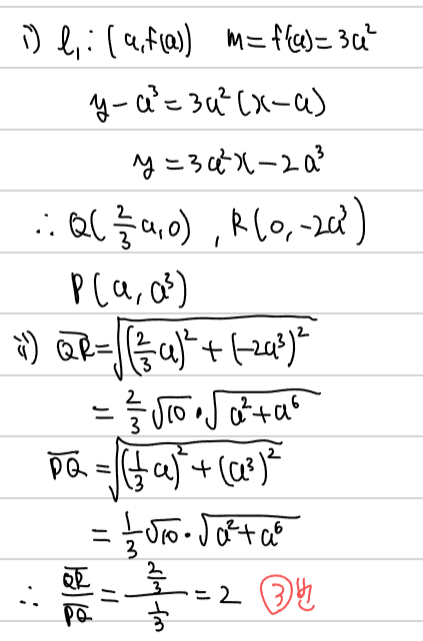 i) l₁ : (a, f(a))  m = f'(a) = 3a²
y - a³ = 3a² (x - a)
y = 3a²x - 2a³
∴ Q(2/3 a, 0) , R(0, -2a³)
P(a, a³)
ii) Q̅R̅ = √((2/3 a)² + (-2a³)²)
= 2/3 √10 · √(a² + a⁶)
P̅Q̅ = √((1/3 a)² + (a³)²)
= 1/3 √10 · √(a² + a⁶)
∴ Q̅R̅/P̅Q̅ = (2/3)/(1/3) = 2 ③번